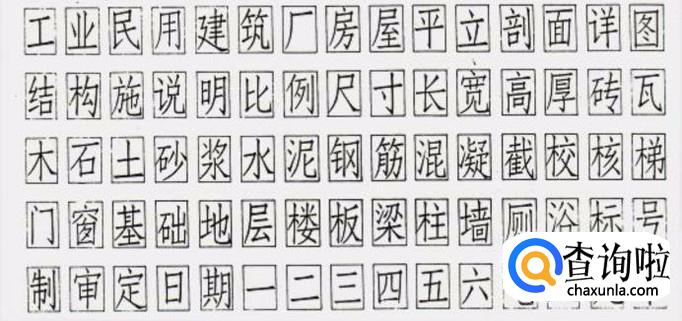 工业民用建筑厂房屋平立剖面详图
结构施说明比例尺寸长宽高厚砖瓦
木石土砂浆水泥钢筋混凝截校核梯
门窗基础地层楼板梁柱墙厕浴标号
制审定日期一二三四五六
查询啦
chaxunla.com